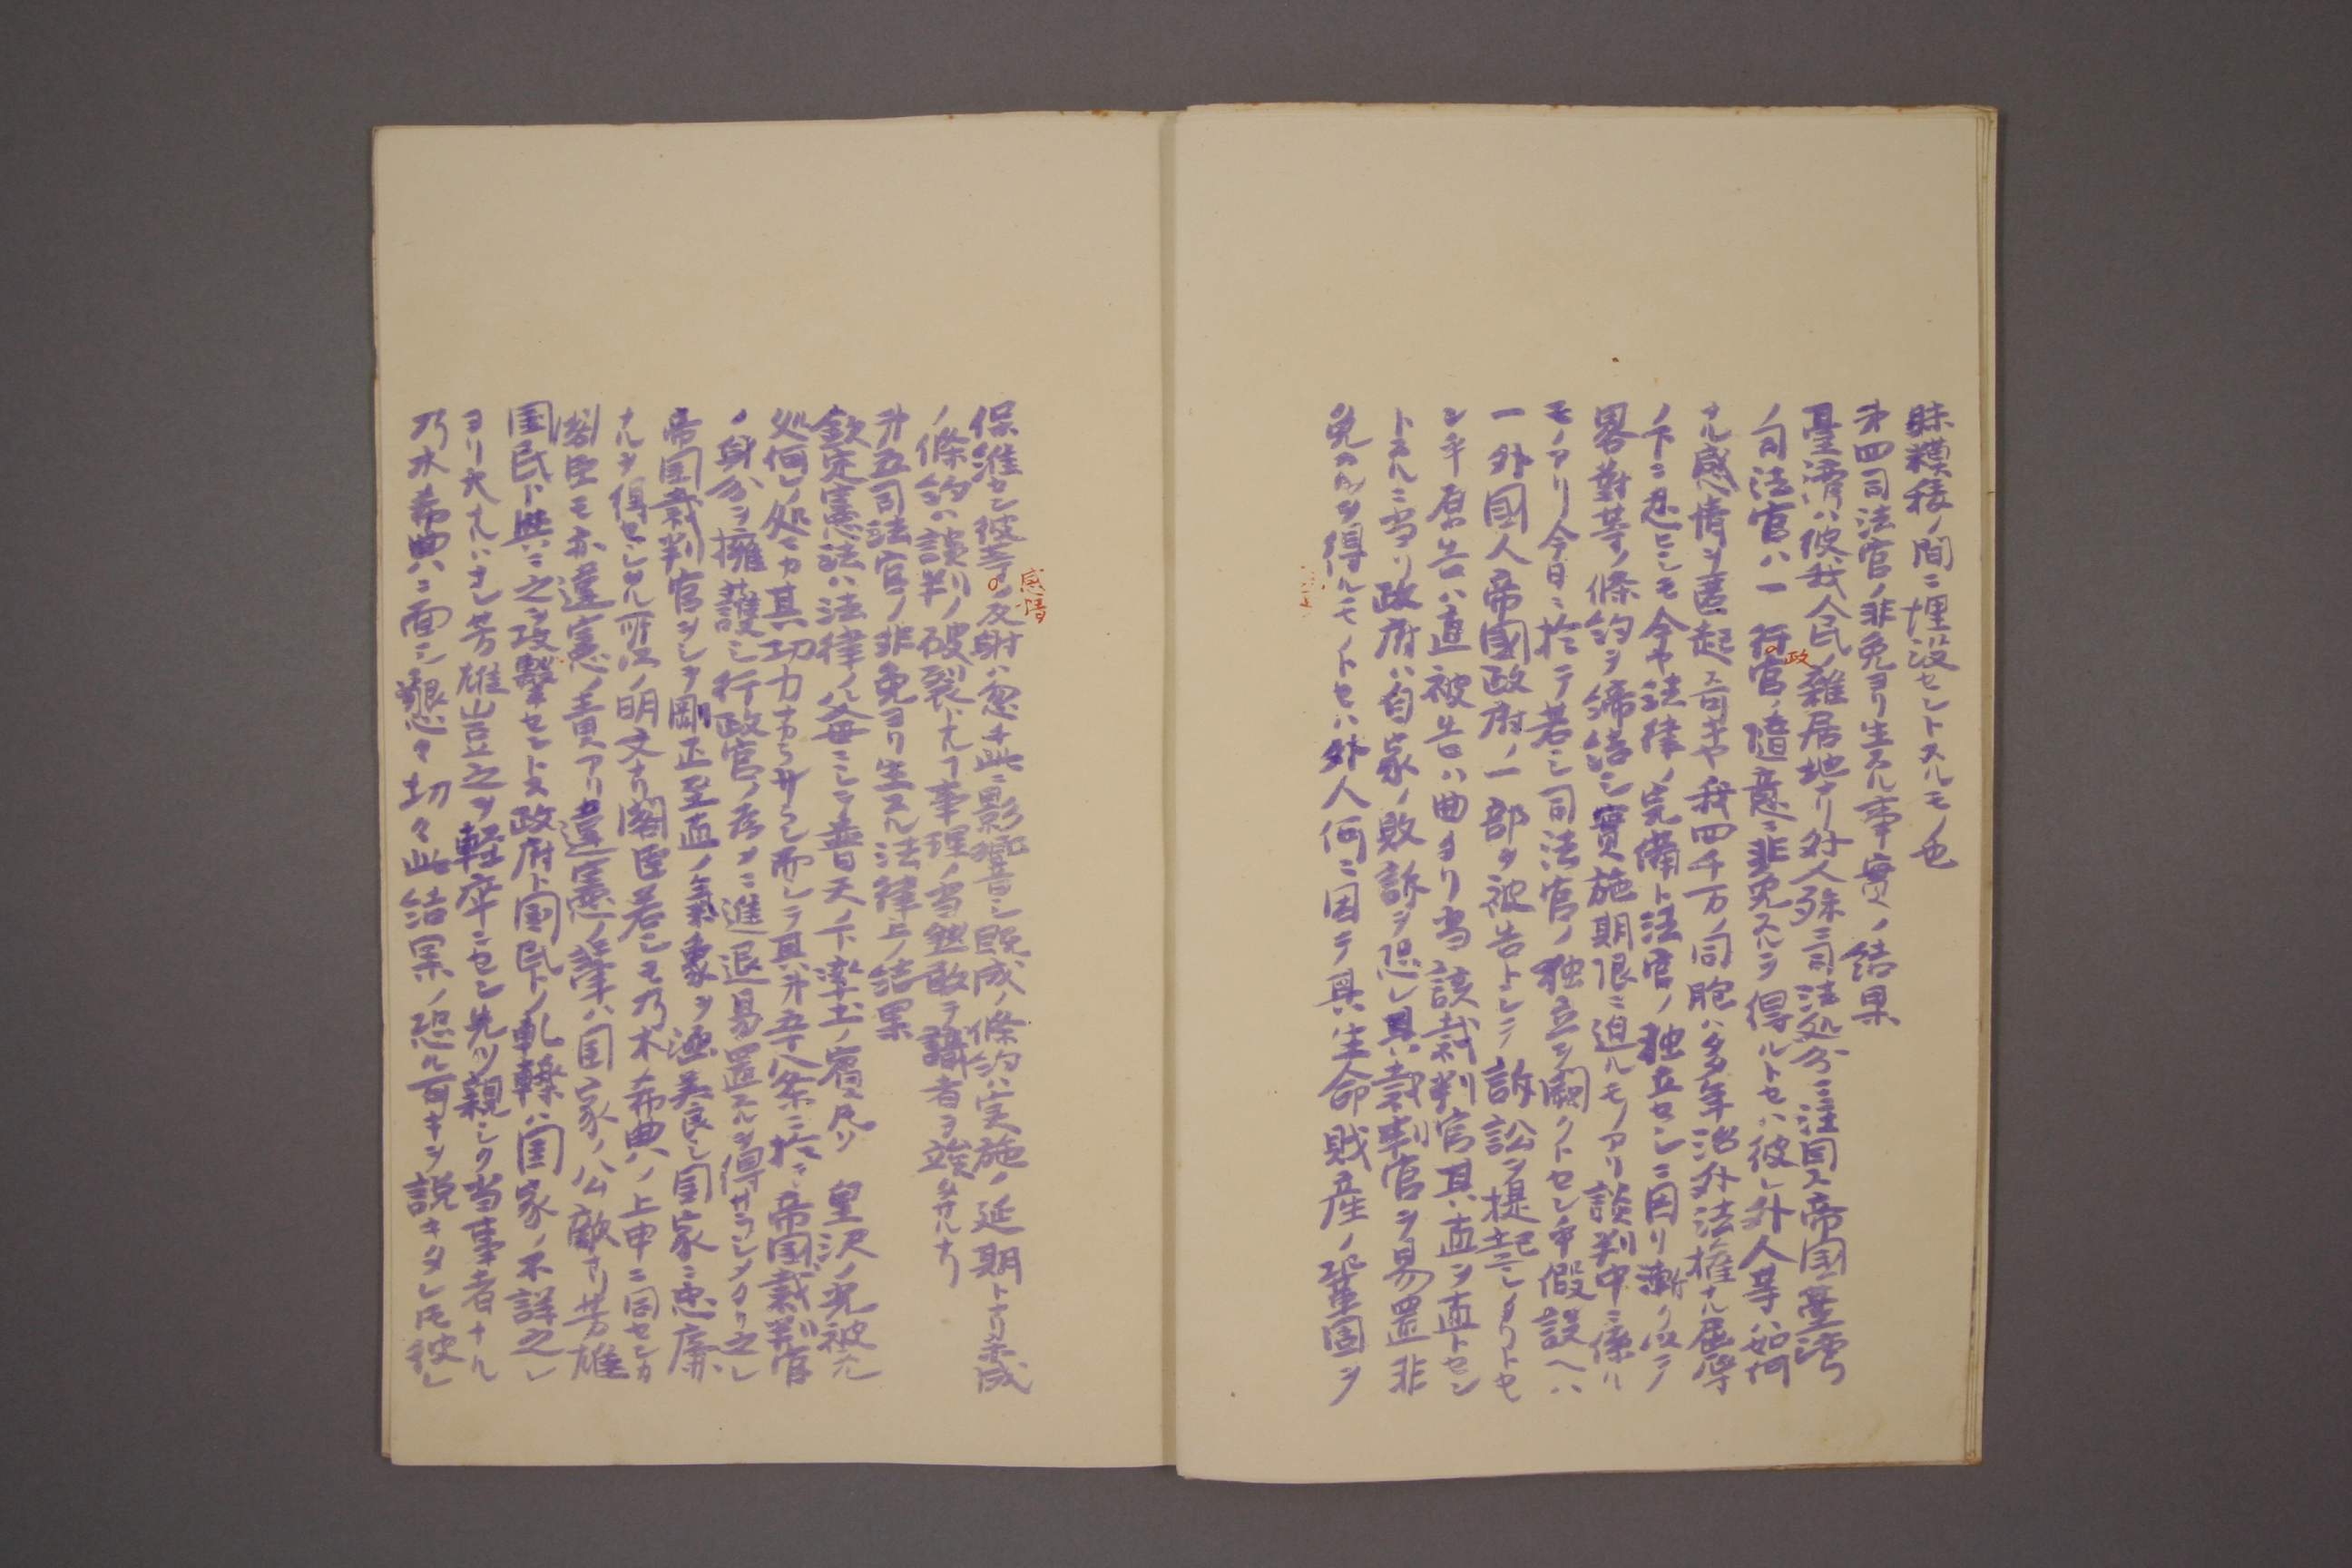 昧糢稜ノ間ニ埋没セントスルモノ也
第四司法官ノ非免ヨリ生スル事實ノ結果
臺湾ハ彼我人民ノ雜居地ナリ外人殊ニ司法処分ニ注目ス帝国臺湾
ノ司法官ハ一行官ノ隨意ニ非免スルヲ得ルトセハ彼レ外人等ハ如何
政
ナル感情ヲ惹起ス可キヤ我四千万ノ同胞ハ多年治外法権ナル屈辱
ノ下ニ忍ヒシモ今ヤ法律ノ完備ト法官ノ独立セシニ因リ漸ク以テ
畧對等ノ條約ヲ締結シ實施期限ニ迫ルモノアリ談判中ニ係ル
モノアリ今日ニ於テ若シ司法官ノ独立ヲ闕クトセン乎假設ヘハ
一外國人帝國政府ノ一部ヲ被告トシテ訴訟ヲ提起シタリトセ
ン乎原告ハ直被告ハ曲タリ当該裁判官其直ヲ直トセン
トスルニ当リ政府ハ自家ノ敗訴ヲ恐レ其裁判官ヲ易置非
免スルヲ得ルモノトセハ外人何ニ因テ其生命財産ノ鞏固ヲ
保維セン彼等ノ反射ハ忽チ此ニ影響シ既成ノ條約ハ実施ノ延期トナリ未成
感情
ノ條約ハ談判ノ破裂トナル事理ノ当然敢テ識者ヲ竢タサルナリ
第五司法官ノ非免ヨリ生スル法律上ノ結果
欽定憲法ハ法律ノ父母ニシテ普天ノ下率土ノ濱凡ソ 皇沢ノ光被スル
処何レノ処ニカ其功力ナカラサラン而シテ其第五十八条ニ於テ帝国裁判官
ノ身分ヲ擁護シ行政官ノ為メニ進退易置スルヲ得サラシメタリ之レ
帝国裁判官ヲシテ剛正至直ノ氣象ヲ涵養シ国家ニ忠廉
ナルヲ得セシムル所以ノ明文ナリ閣臣若シモ乃木希典ノ上申ニ同センカ
閣臣モ亦違憲ノ責アリ違憲ノ筆ハ国家ノ公敵ナリ芳雄
国民ト與ニ之ヲ攻撃セントス政府ト国民トノ軋轢ハ国家ノ不詳之レ
ヨリ大ナルハナシ芳雄豈之ヲ軽卒ニセン先ツ親シク当事者ナル
乃木希典ニ面シ懇々切々此結果ノ恐ル可キヲ説キタレトモ彼レ